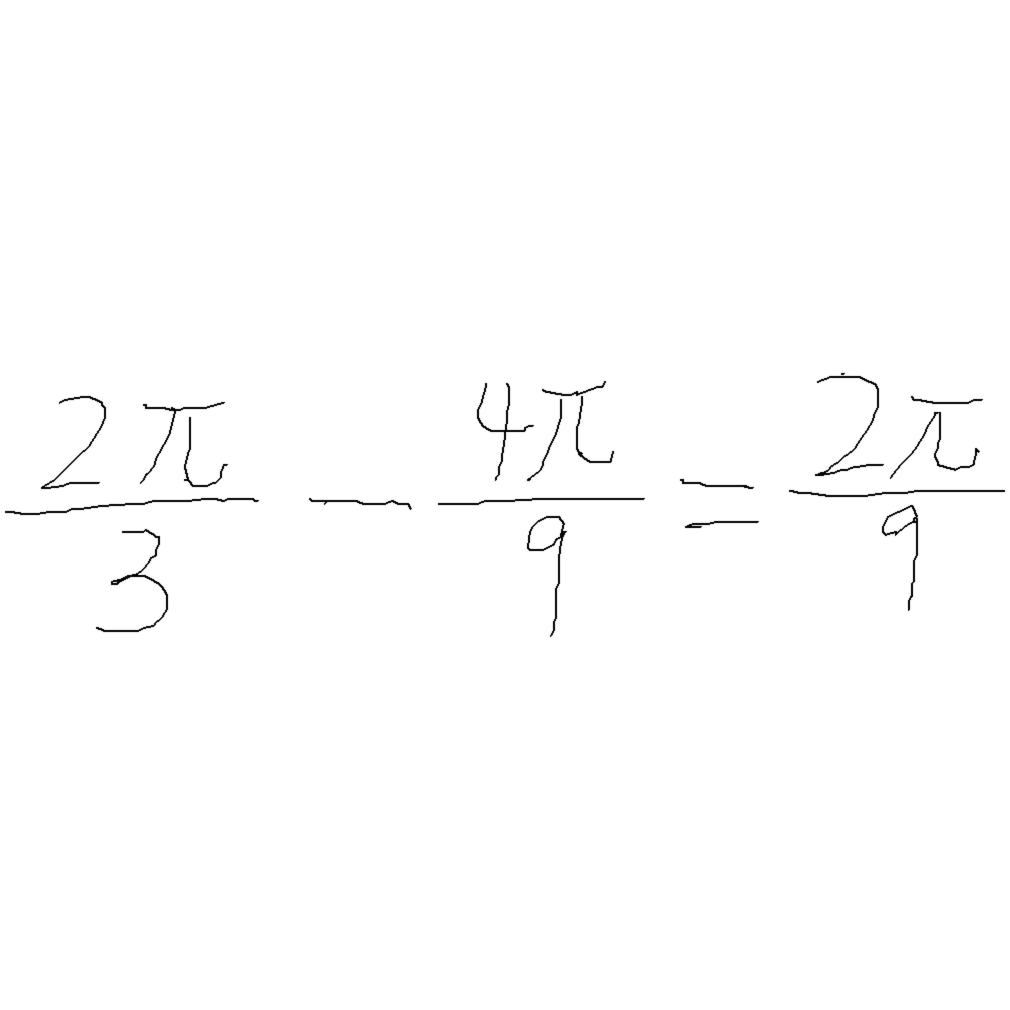 \frac{2\pi}{3} - \frac{4\pi}{9} = \frac{2\pi}{9}